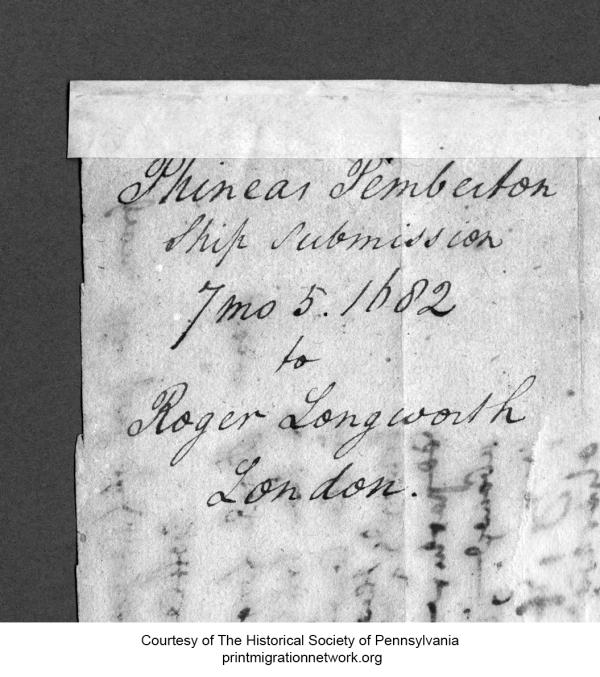 Phineas Pemberton
Ship Submission
7 mo 5. 1682
to
Roger Longworth
London.
Courtesy of The Historical Society of Pennsylvania
printmigrationnetwork.org